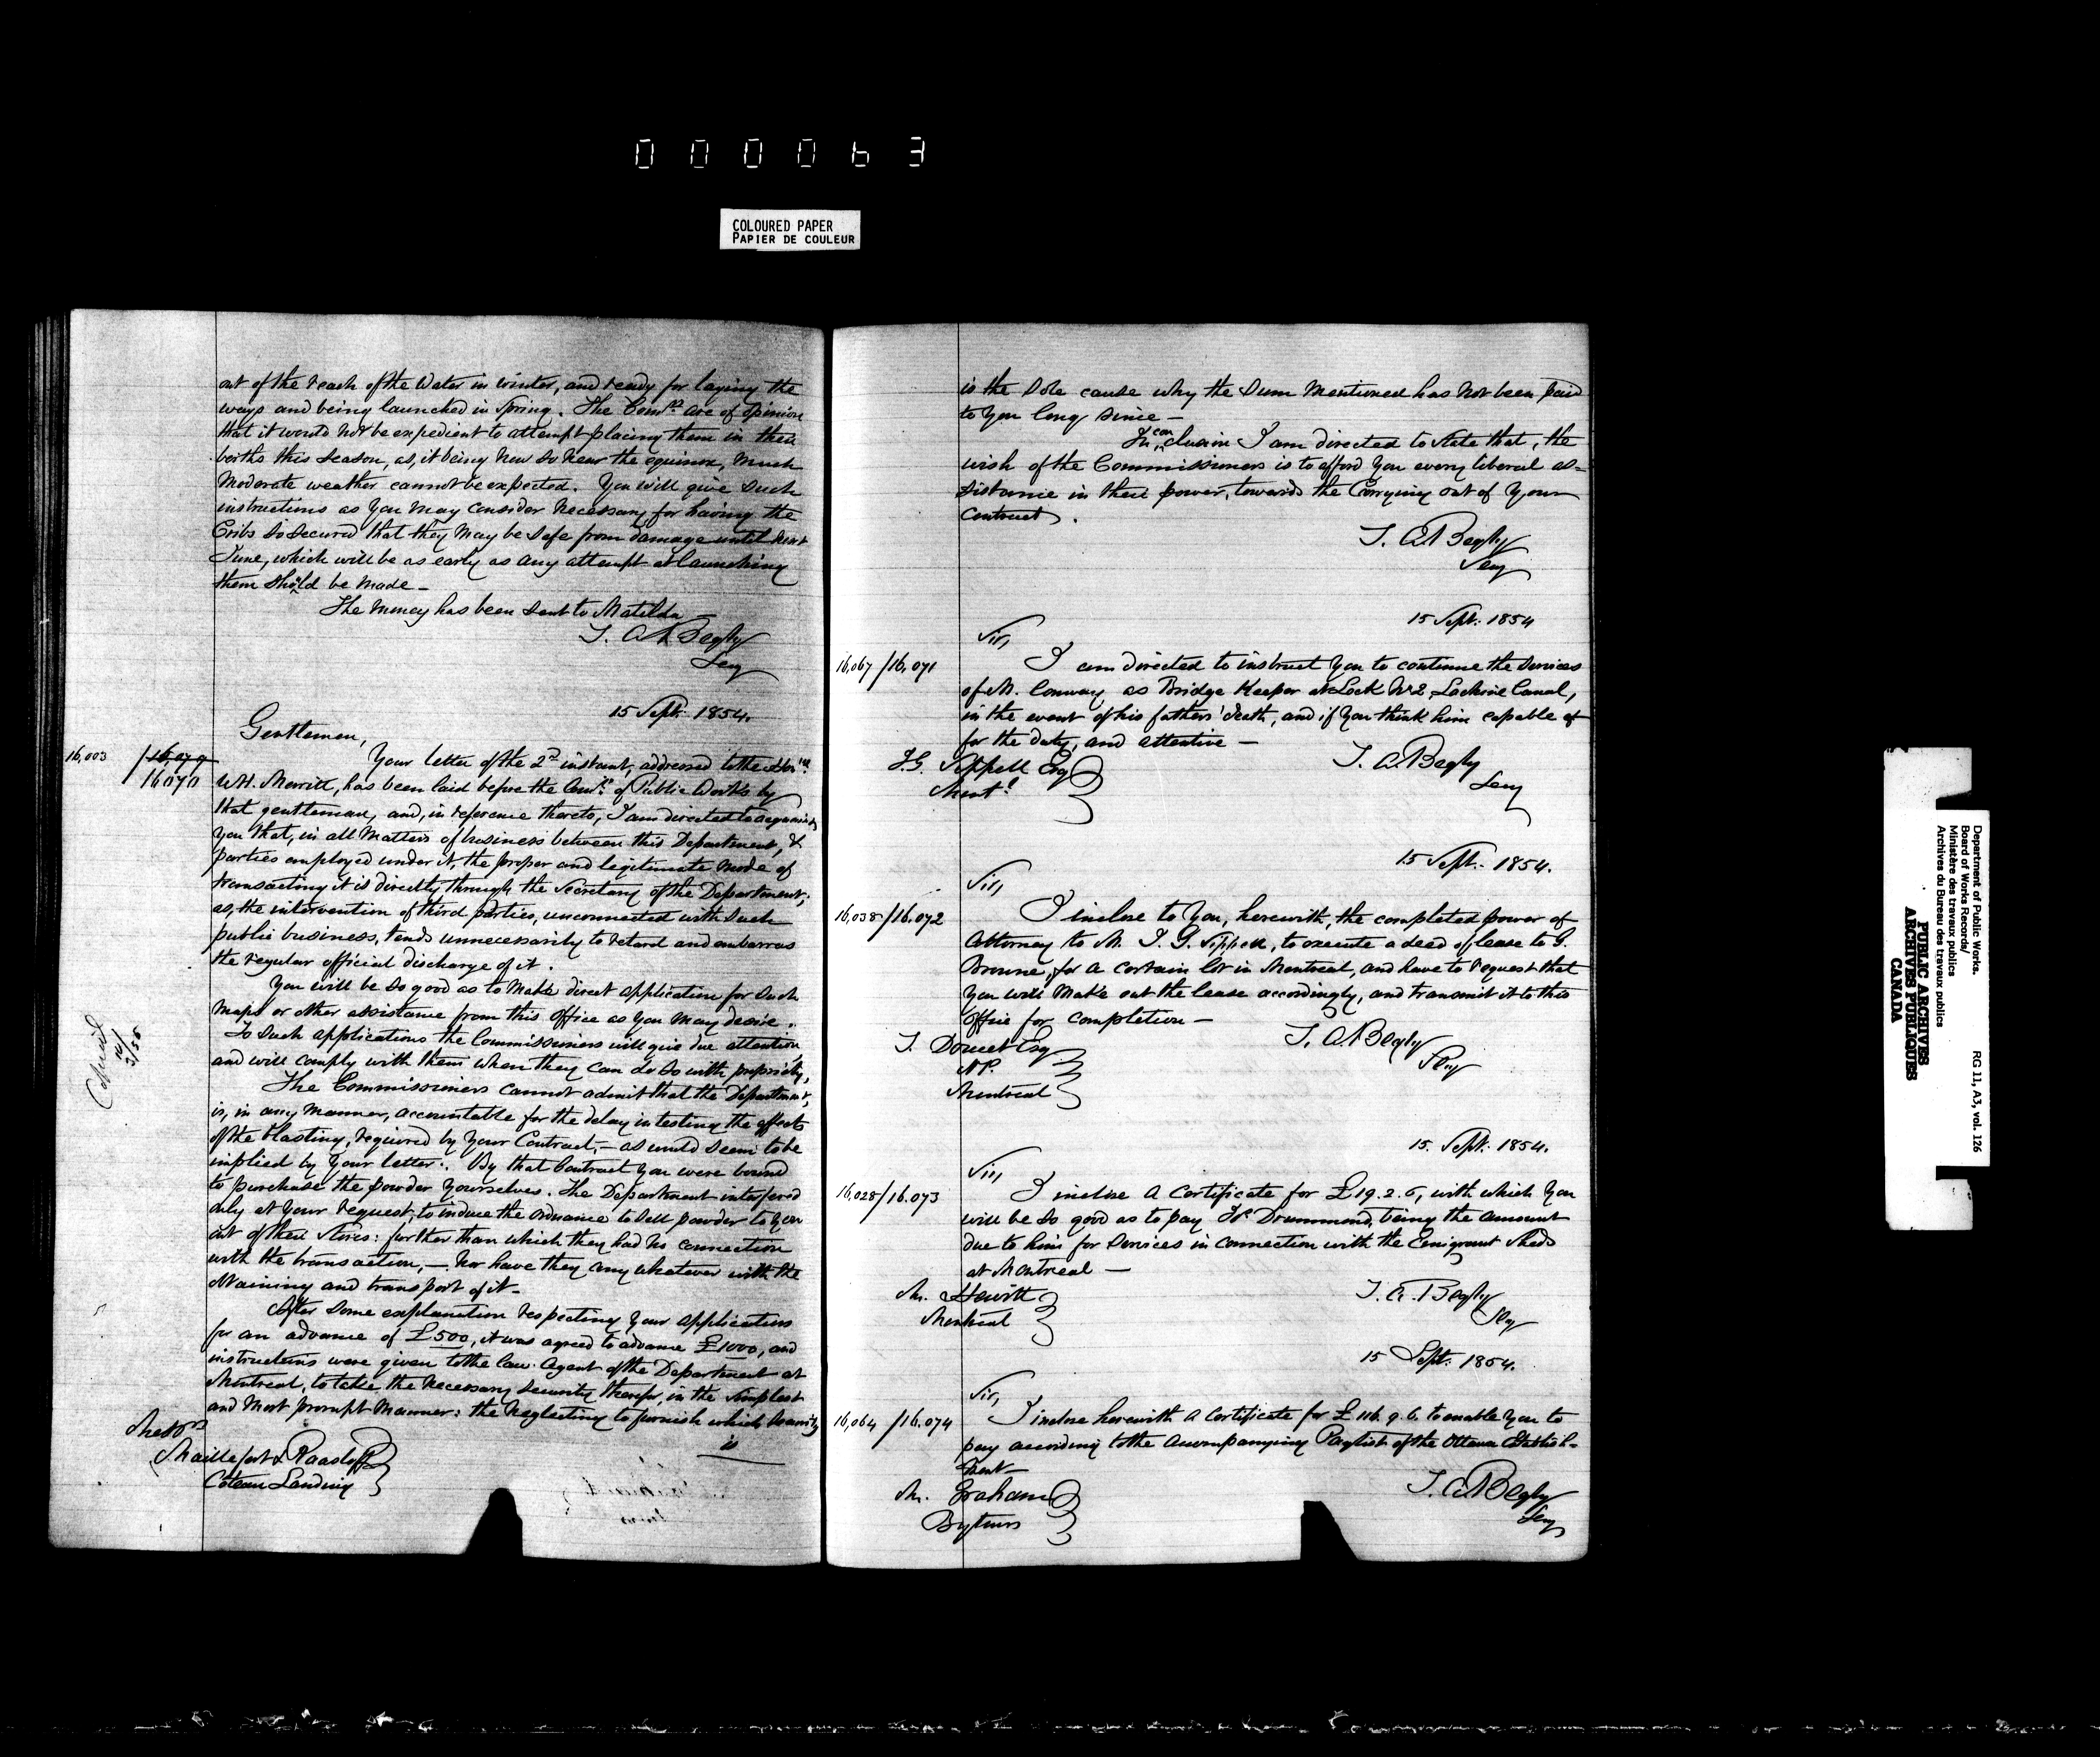 000063
COLOURED PAPER
PAPIER DE COULEUR
out of the reach of the Water in winter, and ready for laying the
ways and being launched in Spring. The Comrs are of opinion
that it would not be expedient to attempt placing them in their
berths this season, as, it being now so near the equinox, much
moderate weather cannot be expected. You will give such
instructions as you may consider necessary for having the
Cribs so secured that they may be safe from damage until next
June, which will be as early as any attempt at launching
them should be made —
The money has been sent to Matilda
T. A. Begly
Secy
15 Sept. 1854.
Gentlemen,
16,003 / 16,070
16070
Your letter of the 2d instant, addressed to the Honble
W.H. Merritt, has been laid before the Comrs of Public Works by
that gentleman, and, in reference thereto, I am directed to acquaint
you that, in all matters of business between this Department, &
parties employed under it, the proper and legitimate mode of
transacting it is directly through the Secretary of the Department;
as, the intervention of third parties, unconnected with such
public business, tends unnecessarily to retard and embarrass
the regular official discharge of it.
You will be so good as to make direct application for such
maps or other assistance from this Office as you may desire.
To such applications the Commissioners will give due attention
and will comply with them when they can do so with propriety.
The Commissioners cannot admit that the Department,
is, in any manner, accountable for the delay in testing the effects
of the blasting, required by your Contract, — as would seem to be
implied by your letter. By that Contract you were bound
to purchase the powder yourselves. The Department interfered
only at your request, to induce the Ordnance to sell powder to you
out of their Stores: further than which they had no connection
with the transaction, — nor have they any whatever with the
obtaining and transport of it —
After some explanation respecting your application
for an advance of £500, it was agreed to advance £1000, and
instructions were given to the law Agent of the Department at
Montreal, to take the necessary security therefor, in the simplest
and most prompt manner: the neglecting to furnish which security
is
Messrs
Maillefert & Raasloff
Coteau Landing
is the sole cause why the sum mentioned has not been paid
to you long since —
In conclusion I am directed to state that, the
wish of the Commissioners is to afford you every liberal as=
sistance in their power, towards the Carrying out of your
Contract.
T. A. Begly
Secy
15 Sept. 1854
Sir,
16,067 / 16,071
I am directed to instruct you to continue the services
of M. Conway as Bridge Keeper at Lock No 2 Lachine Canal,
in the event of his fathers' death, and if you think him capable of
for the duty, and attentive —
T. A. Begly
Secy
J.G. Sippell Esq
Montl
15 Sept. 1854.
Sir,
16,038 / 16.072
I inclose to you, herewith, the completed power of
Attorney to Mr J. G. Sippell, to execute a deed of lease to G.
Browne, for a certain lot in Montreal, and have to request that
you will make out the lease accordingly, and transmit it to this
Office for completion —
T. A. Begly
Secy
T. Doucet Esq
N.P.
Montreal
15. Sept. 1854.
Sir,
16,028 / 16.073
I inclose a Certificate for £19.2.6, with which you
will be so good as to pay Drummond, being the amount
due to him for services in connection with the Emigrant Sheds
at Montreal —
T. A. Begly
Secy
Mr. Hewitt
Montreal
15 Sept. 1854.
Sir,
16,064 / 16.074
I inclose herewith a Certificate for £116.9.6. to enable you to
pay according to the accompanying Paylist of the Ottawa Establish-
ment —
T. A. Begly
Secy
Mr. Graham
Bytown
Department of Public Works.
Board of Works Records/
Ministère des travaux publics
Archives du Bureau des travaux publics
RG 11, A3, vol. 126
PUBLIC ARCHIVES
ARCHIVES PUBLIQUES
CANADA